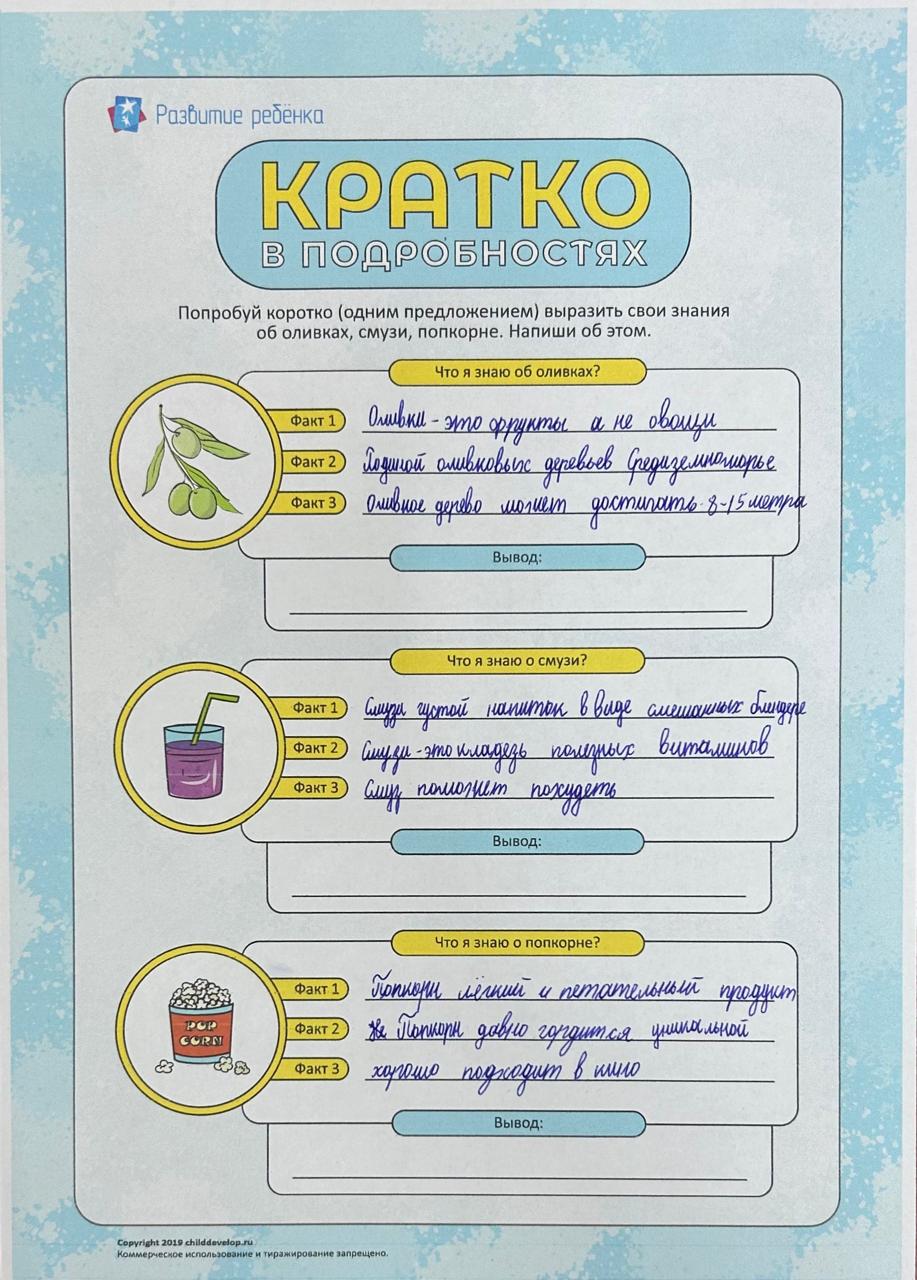 Развитие ребёнка
КРАТКО
В ПОДРОБНОСТЯХ
Попробуй коротко (одним предложением) выразить свои знания
об оливках, смузи, попкорне. Напиши об этом.
Что я знаю об оливках?
Факт 1 Оливки - это фрукты а не овощи
Факт 2 Родиной оливковых деревьев Средиземноморье
Факт 3 Оливное дерево может достигать 8-15 метра
Вывод:
Что я знаю о смузи?
Факт 1 Смузи густой напиток в виде смешанных блендере
Факт 2 Смузи - это кладезь полезных витаминов
Факт 3 Смуз поможет похудеть
Вывод:
Что я знаю о попкорне?
POP
CORN
Факт 1 Попкорн лёгкий и петательный продукт
Факт 2 Попкорн давно гордится уникальной
Факт 3 хорошо подходит в кино
Вывод:
Copyright 2019 childdevelop.ru
Коммерческое использование и тиражирование запрещено.